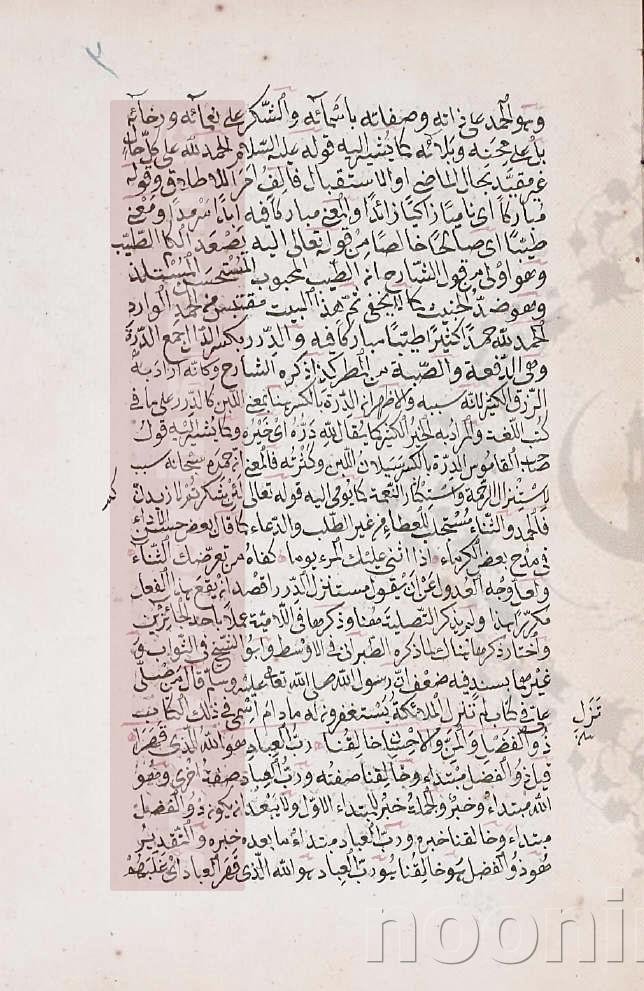 ٢
وهو الحمد على ذاته وصفاته باسمائه والشكر على نعمائه ورخائه
بل على محنه وبلائه كما يشير اليه قوله عليه السلام الحمد لله على كل حال
غير مقيد بحال الماضي او الاستقبال فالف احمرا للاطلاق وقوله
مباركا اى ناميا زاكيا زائدا والمعنى مباركا فيه ابدا سرمدا ومعنى
طيبا اى صالحا خالصا من قوله تعالى اليه يصعد الكلم الطيب
وهو اولى من قول الشارح ان الطيب محبوب المستحسن المستلذ
وهو ضد الخبيث كما لا يخفى ثم هذا البيت مقتبس من الحمد الوارد
الحمد لله حمدا كثيرا طيبا مباركا فيه والدرر بكسر الدال جمع الدرة
وهى الدفعة والصبة من المطر كذا ذكره الشارح وكانه اراد به
الرزق الكثير لانه سببه والاظهر ان الدرة بالكسر هنا بمعنى اللبن كالدر على ما فى
كتب اللغة والمراد به الخير الكثير كما يقال لله دره اى خيره وكما يشير اليه قول
صاحب القاموس الدرة بالكسر سيلان اللبن وكثرته فالمعنى ان حمده سبحانه سبب
لاستنزال الرحمة واستكثار النعمة كما يومى اليه قوله تعالى لئن شكرتم لازيدنكم
فالحمد والثناء مستجلب للعطاء من غير الطلب والدعاء كما قال بعض حسن الاداء
فى مدح بعض الكرماء اذا اثنى عليك المرء يوما كفاه من تعرضك الثناء
ولعل وجه العدول عن ان يقول مستنزل الدرر اقصد ان يقع هذا الفعل
مكررا هذا ولم يذكر التصلية هنا وذكرها فى اللامية عملا باحد الجائزين
واختار ذكرها هناك لما ذكره الطبرانى فى الاوسط وابو الشيخ فى الثواب و
غيرهما بسند فيه ضعف ان رسول الله صلى الله تعالى عليه وسلم قال من صلى
على فى كتاب لم تنزل الملائكة يستغفرون له ما دام اسمى فى ذلك الكتاب
تزل
ذو الفضل والمن والاحسان خالقنا رب العباد هو الله الذى قهرا
فان ذو الفضل مبتداء وخالقنا صفته ورب العباد صفة اخرى وهو
الله مبتداء وخبر والجملة خبر للمبتداء الاول ولا يبعد ان يكون ذو الفضل
مبتداء وخالقنا خبره ورب العباد مبتداء ما بعده خبره والتقدير
هو ذو الفضل هو خالقنا هو رب العباد هو الله الذى قهر العباد اى غلبهم
noonin